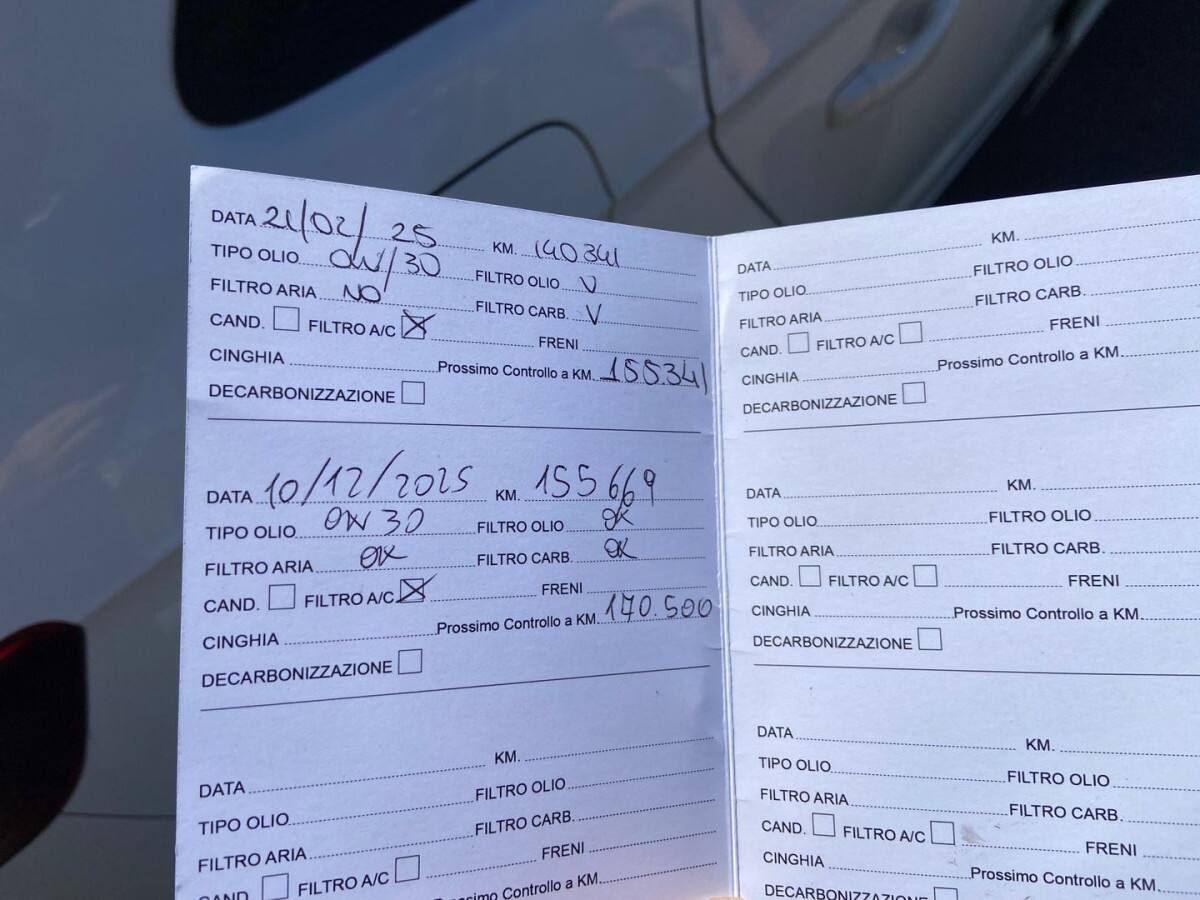 DATA 21/02/25 KM. 140341
TIPO OLIO 0W/30 FILTRO OLIO V
FILTRO ARIA NO FILTRO CARB. V
CAND. FILTRO A/C X FRENI
CINGHIA Prossimo Controllo a KM. 155.341
DECARBONIZZAZIONE
DATA 10/12/2025 KM. 155669
TIPO OLIO 0W 30 FILTRO OLIO OK
FILTRO ARIA OK FILTRO CARB. OK
CAND. FILTRO A/C X FRENI
CINGHIA Prossimo Controllo a KM. 170.500
DECARBONIZZAZIONE
DATA KM.
TIPO OLIO FILTRO OLIO
FILTRO ARIA FILTRO CARB.
CAND. FILTRO A/C FRENI
Prossimo Controllo a KM.
DATA KM.
TIPO OLIO FILTRO OLIO
FILTRO ARIA FILTRO CARB.
CAND. FILTRO A/C FRENI
CINGHIA Prossimo Controllo a KM.
DECARBONIZZAZIONE
DATA KM.
TIPO OLIO FILTRO OLIO
FILTRO ARIA FILTRO CARB.
CAND. FILTRO A/C FRENI
CINGHIA Prossimo Controllo a KM.
DECARBONIZZAZIONE
DATA KM.
TIPO OLIO FILTRO OLIO
FILTRO ARIA FILTRO CARB.
CAND. FILTRO A/C FRENI
CINGHIA Prossimo Controllo a KM.
DECARBONIZZAZIONE